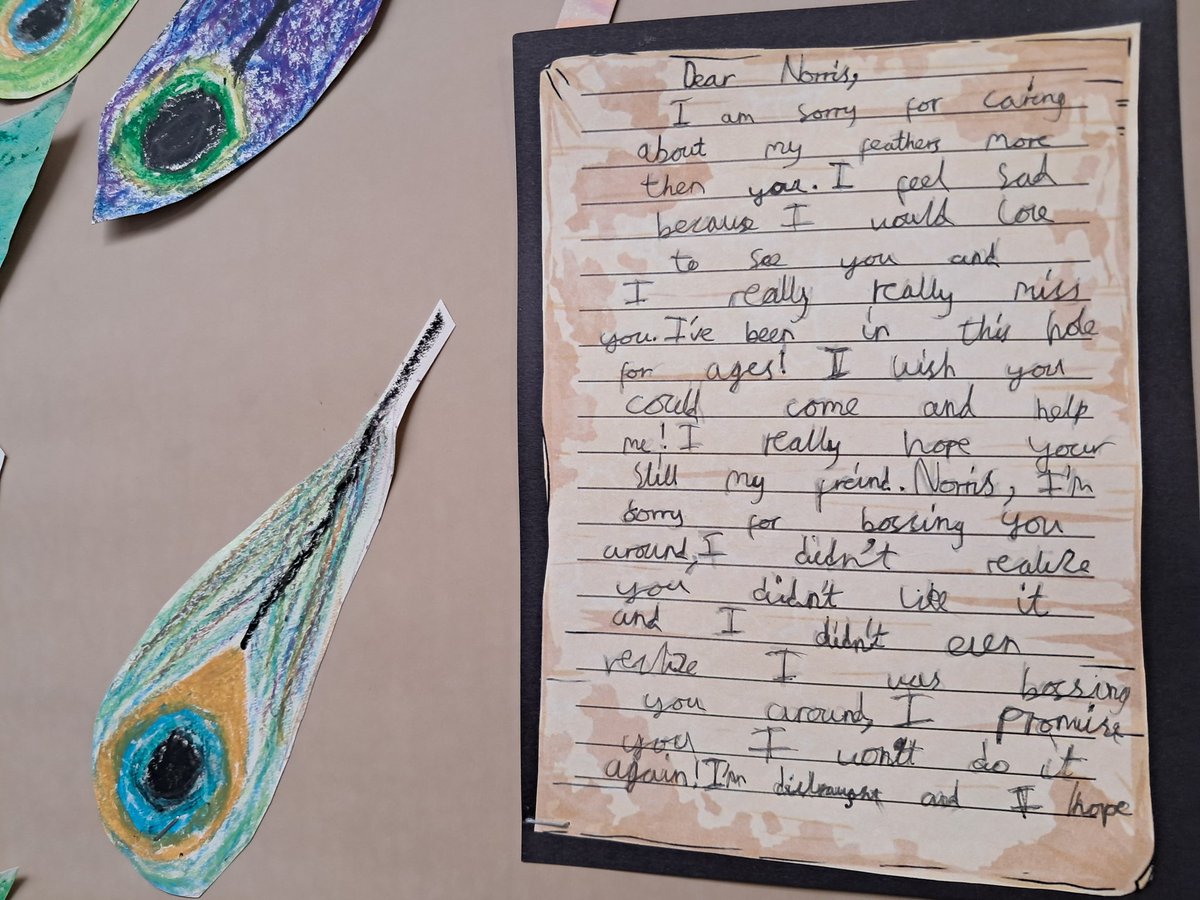 Dear Norris,
I am sorry for caring
about my feathers more
then you. I feel sad
because I would love
to see you and
I really really miss
you. I've been in this hole
for ages! I wish you
could come and help
me! I really hope your
still my freind. Norris, I'm
sorry for bossing you
around, I didn't realize
you didn't like it
and I didn't even
realize I was bossing
you around, I promise
you I won't do it
again! I'm distraught and I hope